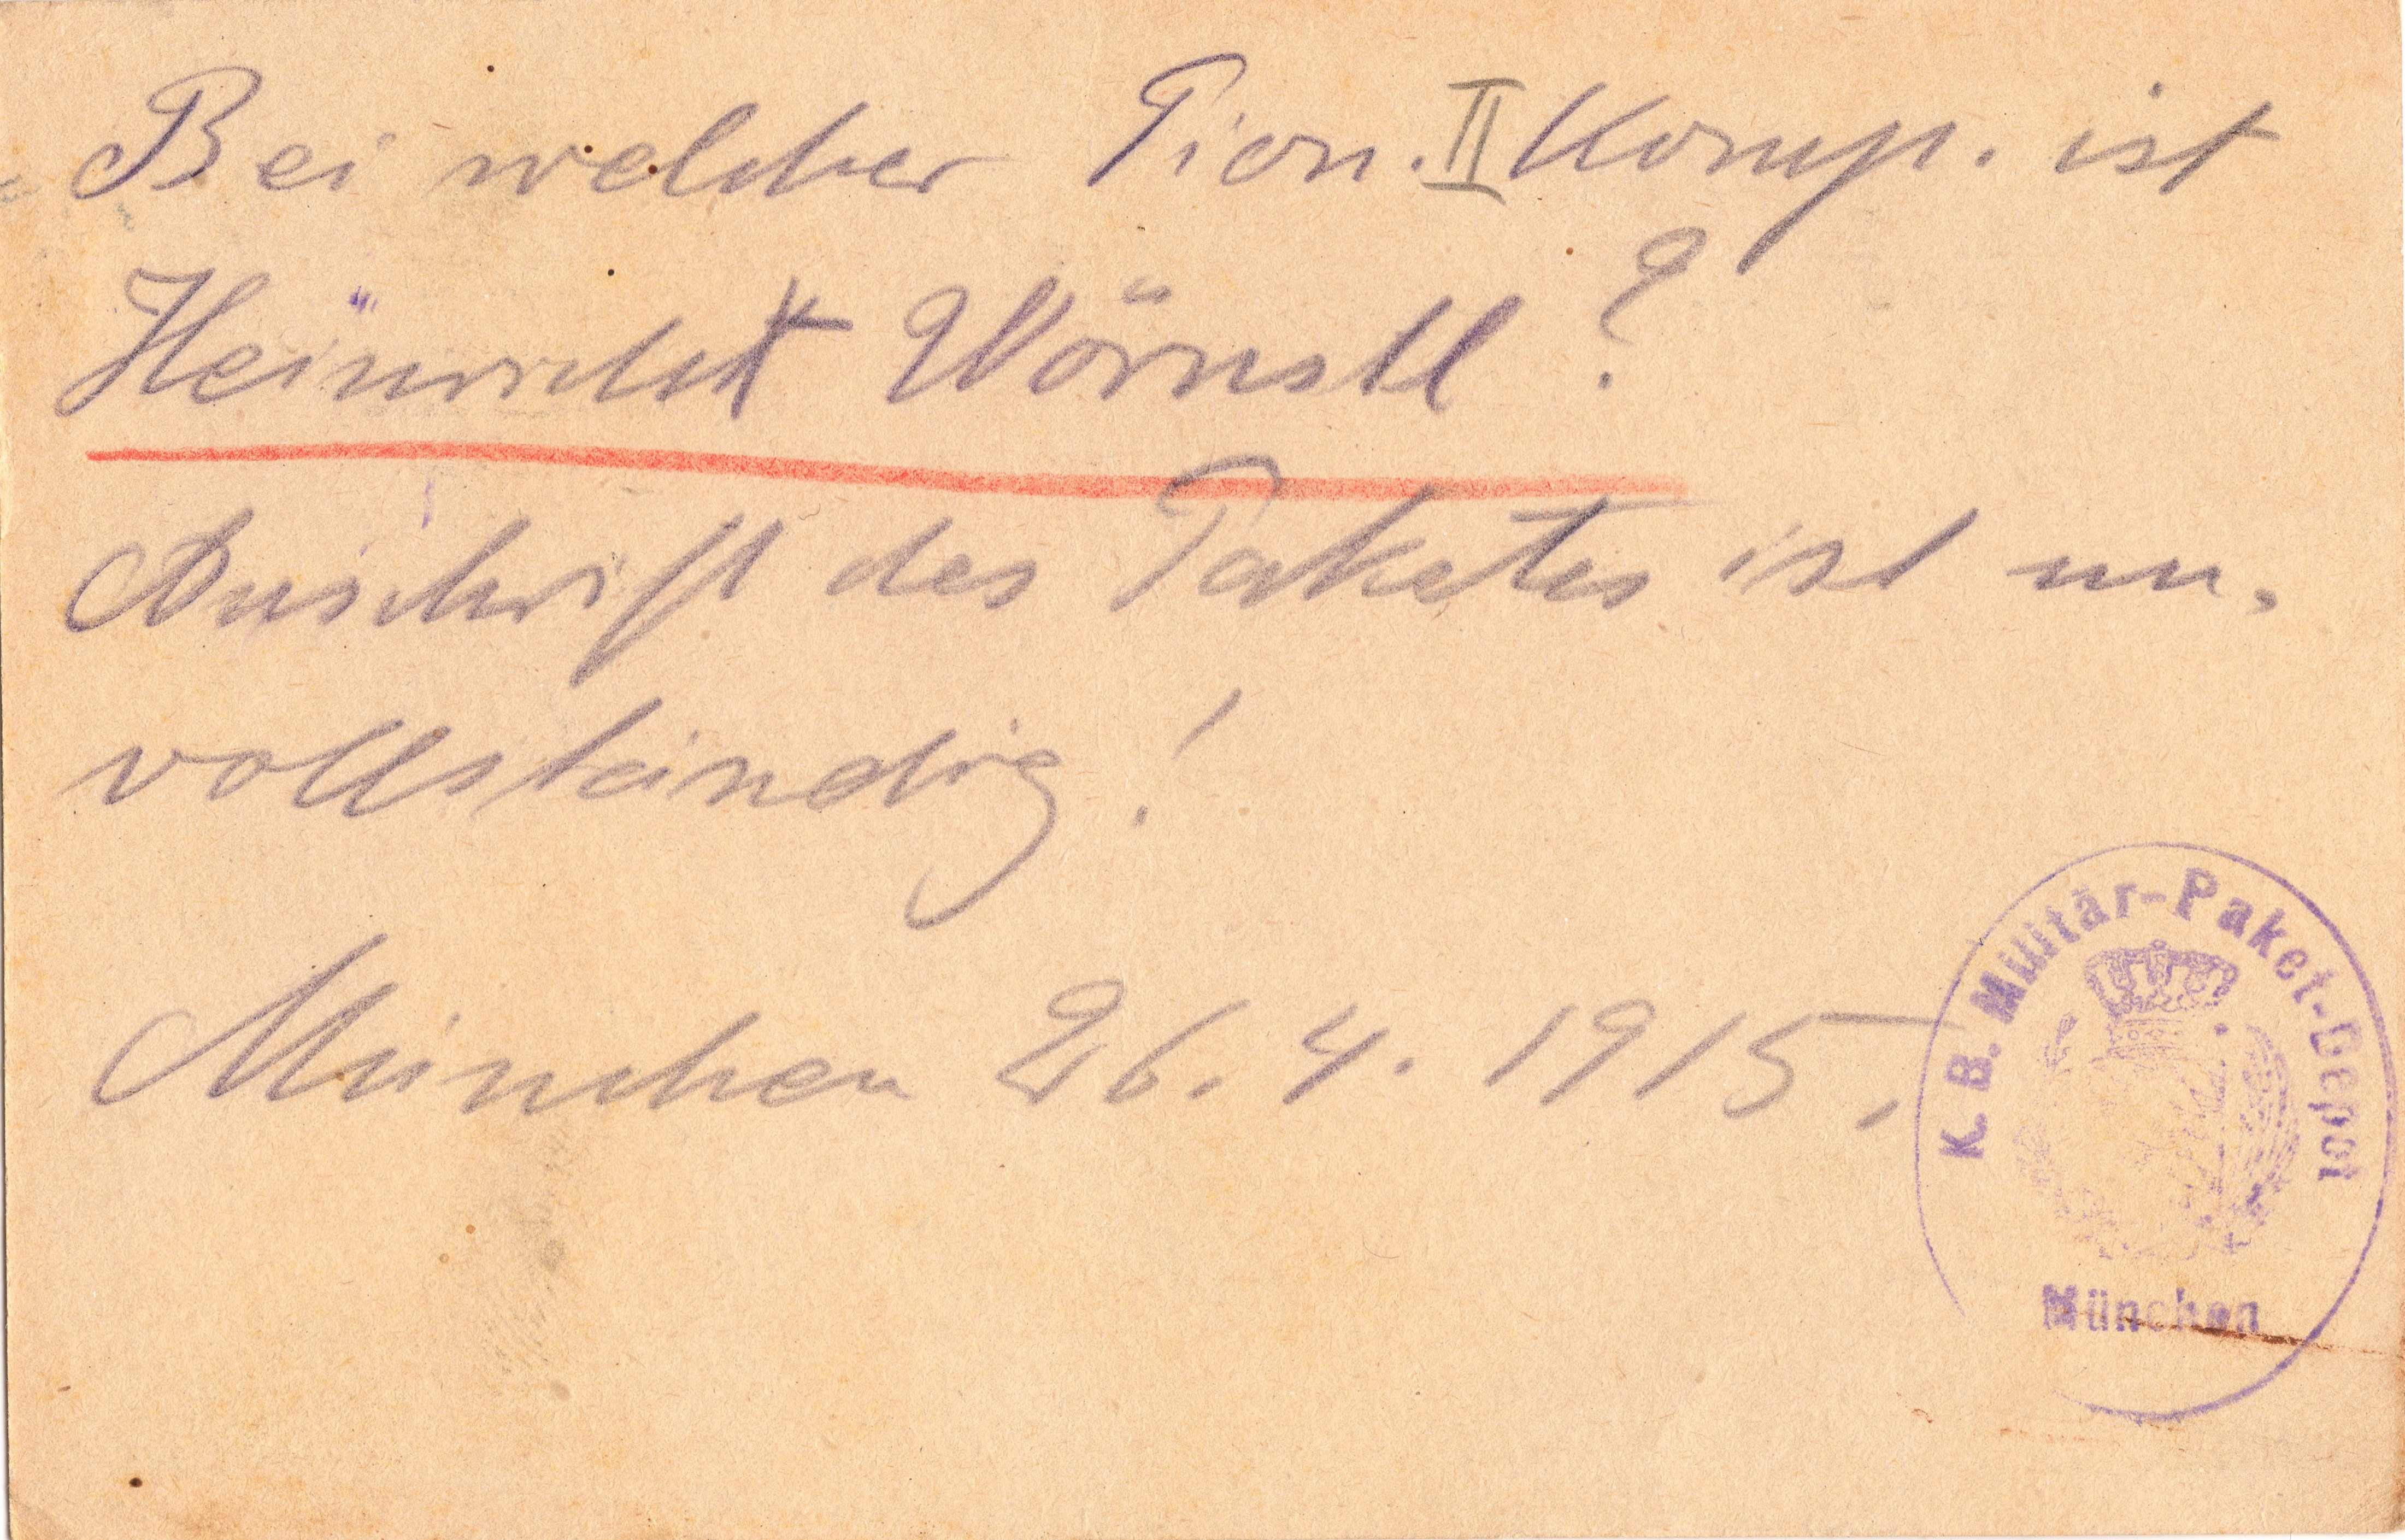 Bei welcher Pion. II Komp. ist
Heinrich Wörnstl ?
Anschrift des Paketes ist un-
vollständig !
München 26. 4. 1915.
K. B. Militär-Paket-Depot
München